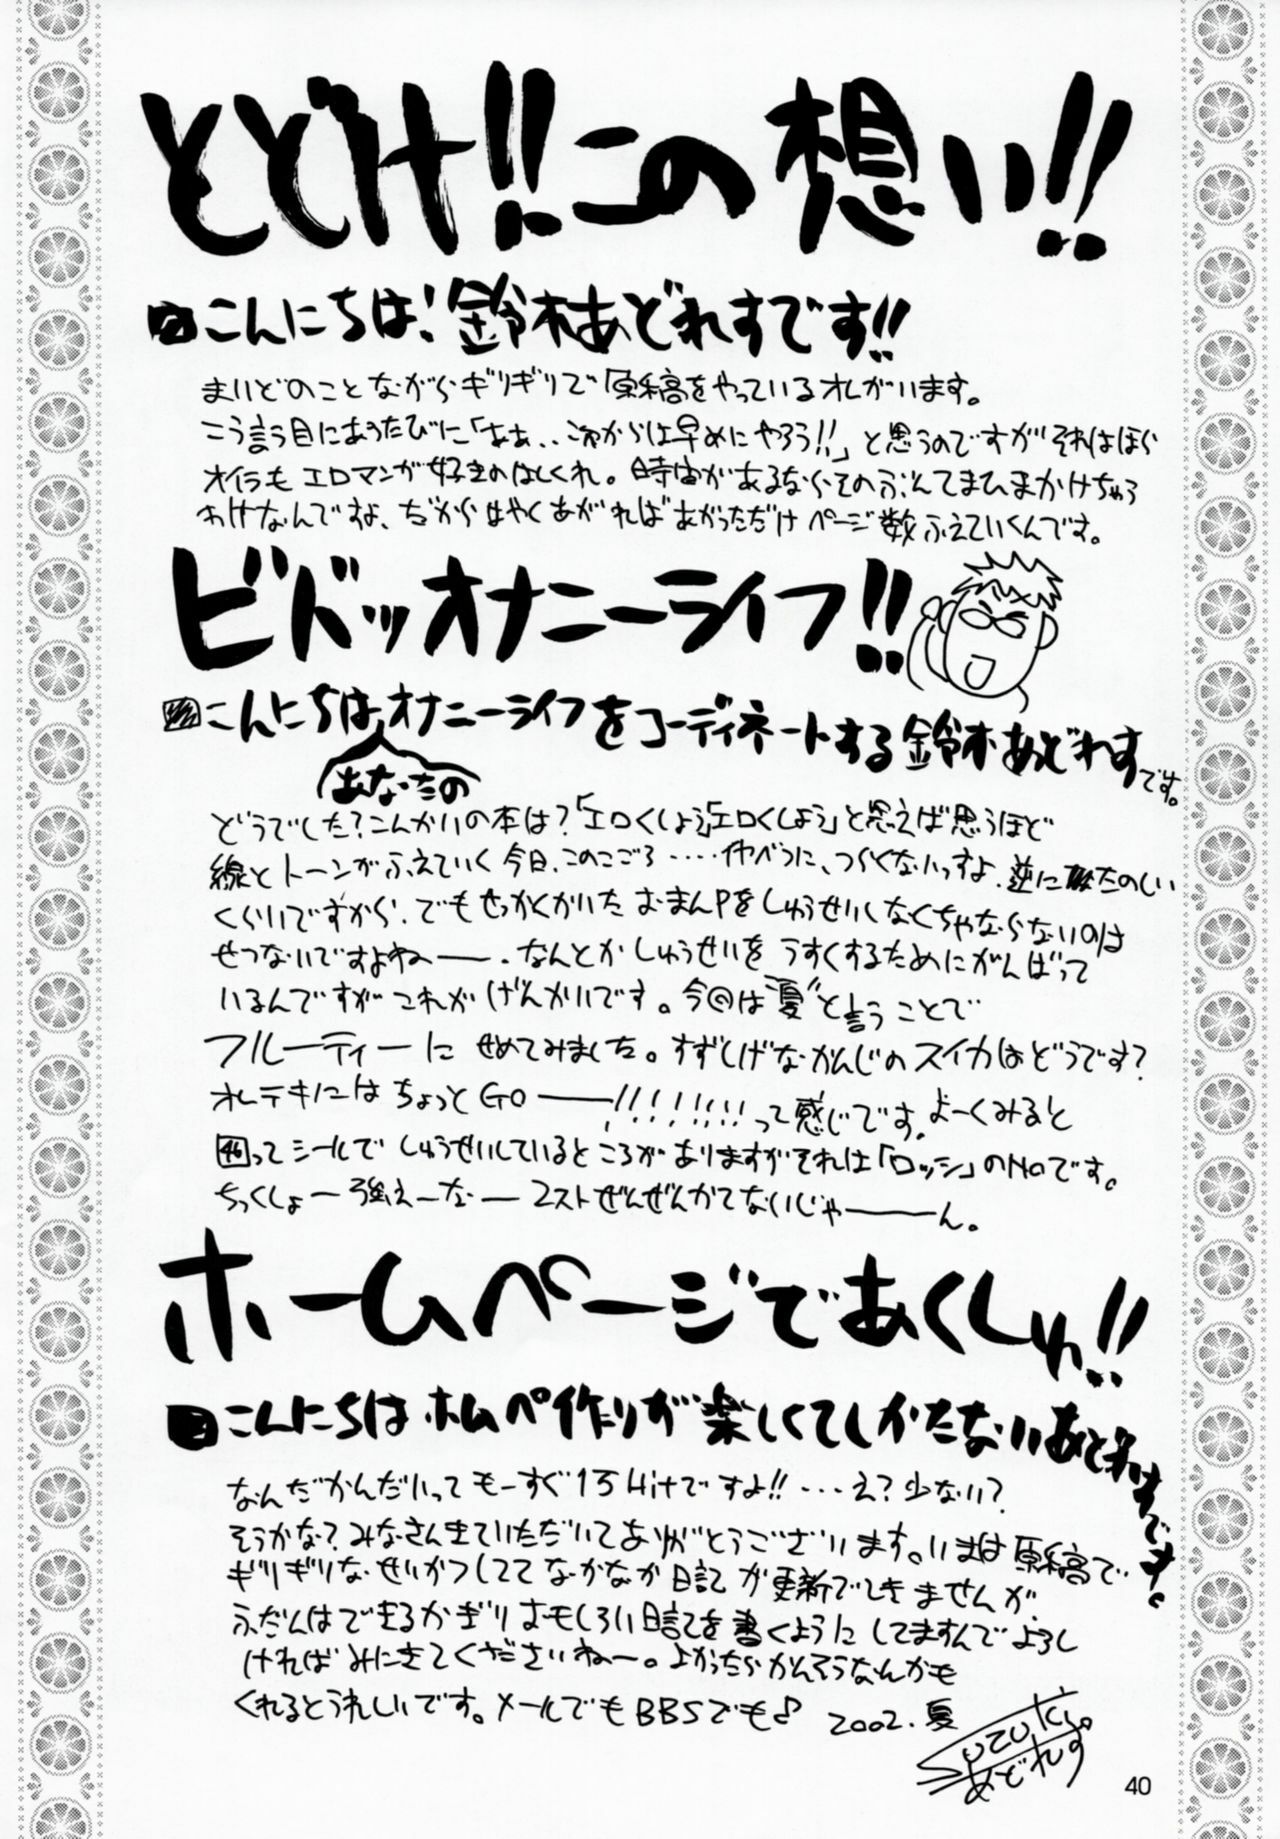 とどけ!!この想い!!
こんにちは!鈴木あどれすです!!
まいどのことながらギリギリで原稿をやっているオレがいます。
こう言う目にあうたびに「ああ、、これからは早めにやろう!!」と思うのですがそれはほら
オイラもエロマンガ好きのはしくれ。時間があるならそのぶんてまひまかけちゃう
わけなんですよ、だからはやくあがればあがっただけページ数ふえていくんです。
ビバドッオナニーライフ!!
こんにちはオナニーライフをコーディネートする鈴木あどれすです。
あなたの
どうでした?こんかいの本は?「エロくしよう」「エロくしよう」と思えば思うほど
線とトーンがふえていく今日、このごろ・・・・べつに、つらくないっすよ、逆にたのしい
くらいですから、でもせっかくかいたおまんPをしゅうせいしなくちゃならないのは
せつないですよねー、なんとかしゅうせいをうすくするためにがんばって
いるんですがこれがげんかいです。今回は"夏"と言うことで
フルーティーにせめてみました。すずしげなかんじのスイカはどうです?
オレテキにはちょっとGOー!!!!!!!!って感じです。よーくみると
46ってシールでしゅうせいしているところがありますがそれは「ロッシ」のNoです。
ちっくしょー強えーなー2ストぜんぜんかてないじゃーん。
ホームページであくしゅ!!
こんにちはホムペ作りが楽しくてしかたないあどれすです。
なんだかんだいってもーすぐ1万Hitですよ!!・・・え?少ない?
そうかな?みなさんきていただいてありがとうございます。いまは原稿で
ギリギリなせいかつしててなかなか日記が更新できませんが
ふだんはできるかぎりおもしろい日記を書くようにしてますんでよろし
ければみにきてくださいねー。よかったらかんそうなんかも
くれるとうれしいです。メールでもBBSでも♪ 2002.夏
Suzuki
あどれす
40